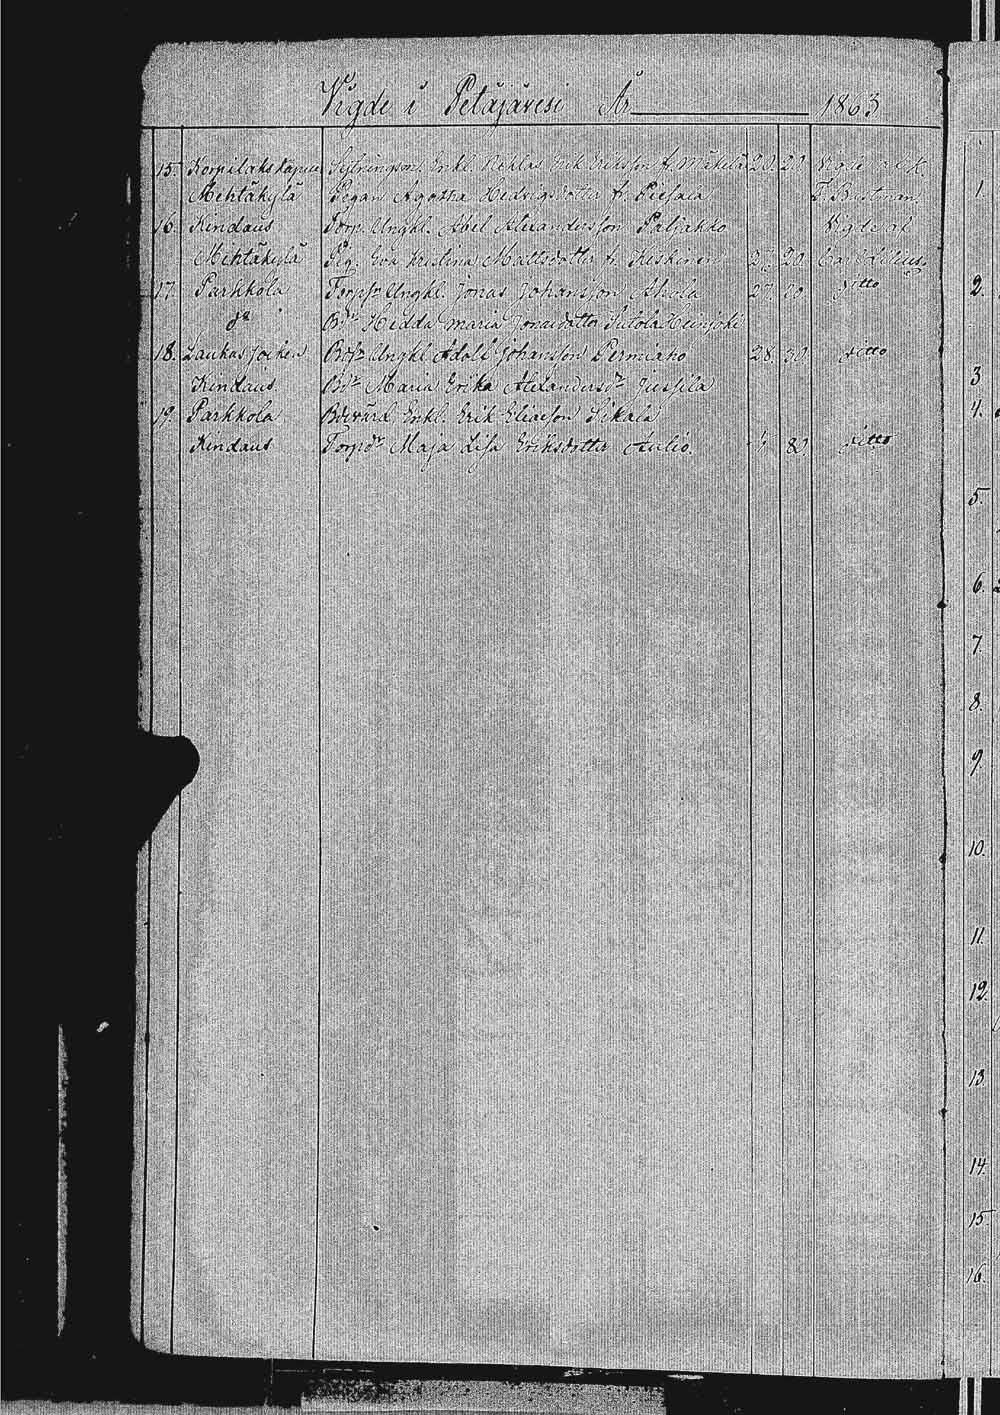 Vigde i Petäjävesi År 1863
15. Korpilaks kapell Enkl. Niklas Erik Eriksson f. Mäkelä 20. 20. Vigde af K.
Mehtäkylä Pigan Agatha Hedvigsdotter fr. Piesala F. Brusiman.
16. Kindaus Torp. Ungkl. Abel Alexandersson Paljakko Vigde af
Mehtäkylä Pig. Eva Kristina Mattsdotter fr. Keskinen 27. 20. Carl Lilius.
17. Parkkola Torpsn Ungkl. Jonas Johansson Ahola 27. 20. ditto
do Bdr Hedda Maria Jonaidotter Heinjoki
18. Laukas socken Ungkl Adolf Johansson Permiaho 28. 30. ditto
Kindaus Bdr Maria Erika Alexandersdr Jussila
19. Parkkola Enkl. Erik Eliaeson Sikala
Kindaus Torpdr Maja Lisa Eriksdotter Aulio. 4 80. ditto
1.
2.
3.
4.
5.
6.
7.
8.
9.
10.
11.
12.
13.
14.
15.
16.